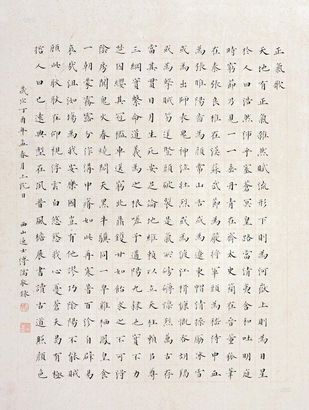 正氣歌
天地有正氣雜然賦流形下則為河嶽上則為日星
於人曰浩然沛乎塞蒼冥皇路當清夷含和吐明庭
時窮節乃見一一垂丹青在齊太史簡在晉董狐筆
在秦張良椎在漢蘇武節為嚴將軍頭為嵇侍中血
為張睢陽齒為顏常山舌或為遼東帽清操厲冰雪
或為出師表鬼神泣壯烈或為渡江楫慷慨吞胡羯
或為擊賊笏逆豎頭破裂是氣所磅礴凜烈萬古存
當其貫日月生死安足論地維賴以立天柱賴以尊
三綱實繫命道義為之根嗟予遘陽九隸也實不力
楚囚纓其冠傳車送窮北鼎鑊甘如飴求之不可得
陰房闃鬼火春院閟天黑牛驥同一皂雞棲鳳凰食
一朝蒙霧露分作溝中瘠如此再寒暑百沴自辟易
哀哉沮洳場為我安樂國豈有他繆巧陰陽不能賊
顧此耿耿在仰視浮雲白悠悠我心憂蒼天曷有極
哲人日已遠典型在夙昔風簷展書讀古道照顏色
歲次丁酉年孟春月上浣日 西山逸士溥儒敬錄